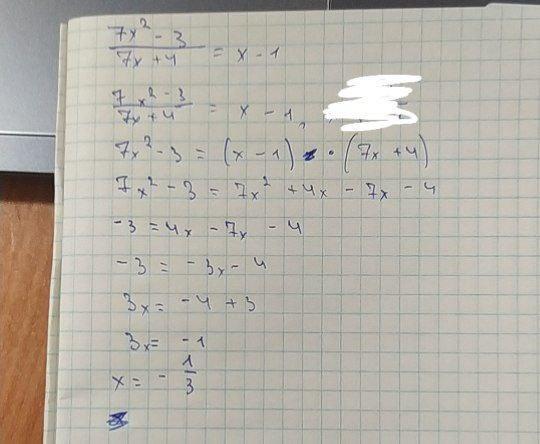 7x² - 3 / 7x + 4 = x - 1
7x² - 3 / 7x + 4 = x - 1,
7x² - 3 = (x - 1) · (7x + 4)
7x² - 3 = 7x² + 4x - 7x - 4
-3 = 4x - 7x - 4
-3 = -3x - 4
3x = -4 + 3
3x = -1
x = - 1/3